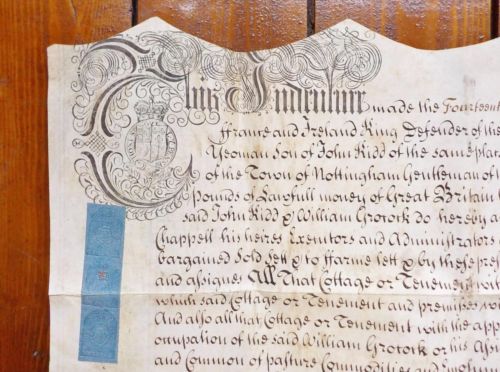 This Indenture made the Fourteent
ffrance and Ireland King Defender of the
Yeoman Son of John Kidd of the same plac
of the Town of Nottingham Gentleman of t
Pounds of Lawfull money of Great Britain
said John Kidd & William Grocock do hereby a
Chappell his heires Executors and Administrators
bargained Sold sett & to ffarme lett & by these pres
and assignes All That Cottage or Tenement w
which said Cottage or Tenement and premises
And also all that Cottage or Tenement with the app
occupation of the said William Grocock or his Assi
and Common of pasture Commodities and